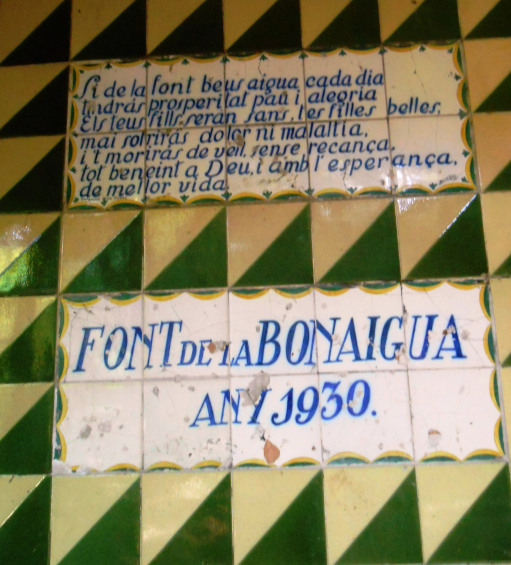 Si de la font beus aigua cada dia
tindràs prosperitat pau i alegria
Els teus fills seran sans, les filles belles,
mai sofriràs dolor ni malaltia,
i't moriràs de vell, sense recança,
tot beneint a Deu, i amb l'esperança,
de mellor vida
FONT DE LA BONAIGUA
ANY 1930.